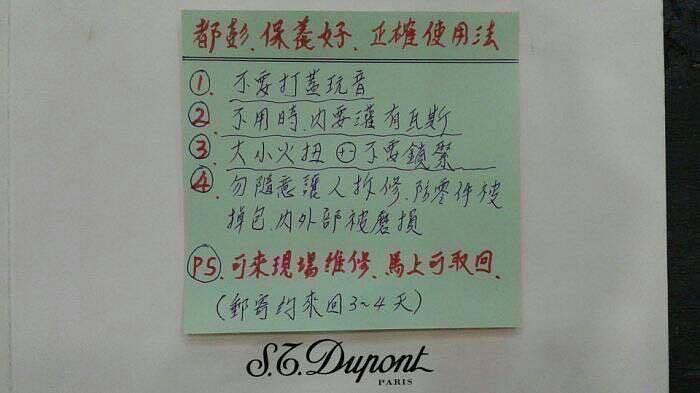 都彭、保養好、正確使用法
①. 不要打蓋玩音
②. 不用時、內要灌有瓦斯
③. 大小火扭 ⊕⊖ 不要鎖緊
④. 勿隨意讓人拆修、防零件被
掉包、內外部被磨損
PS. 可來現場維修、馬上可取回、
(郵寄約來回3~4天)
S.T. Dupont
PARIS